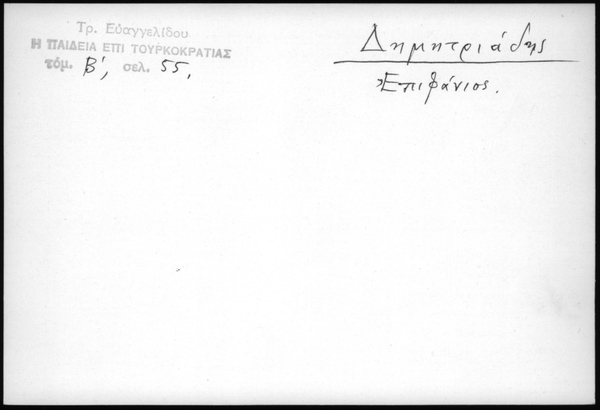 Τρ. Εὐαγγελίδου
Η ΠΑΙΔΕΙΑ ΕΠΙ ΤΟΥΡΚΟΚΡΑΤΙΑΣ
τόμ. Β', σελ. 55,
Δημητριάδης
Ἐπιφάνιος.